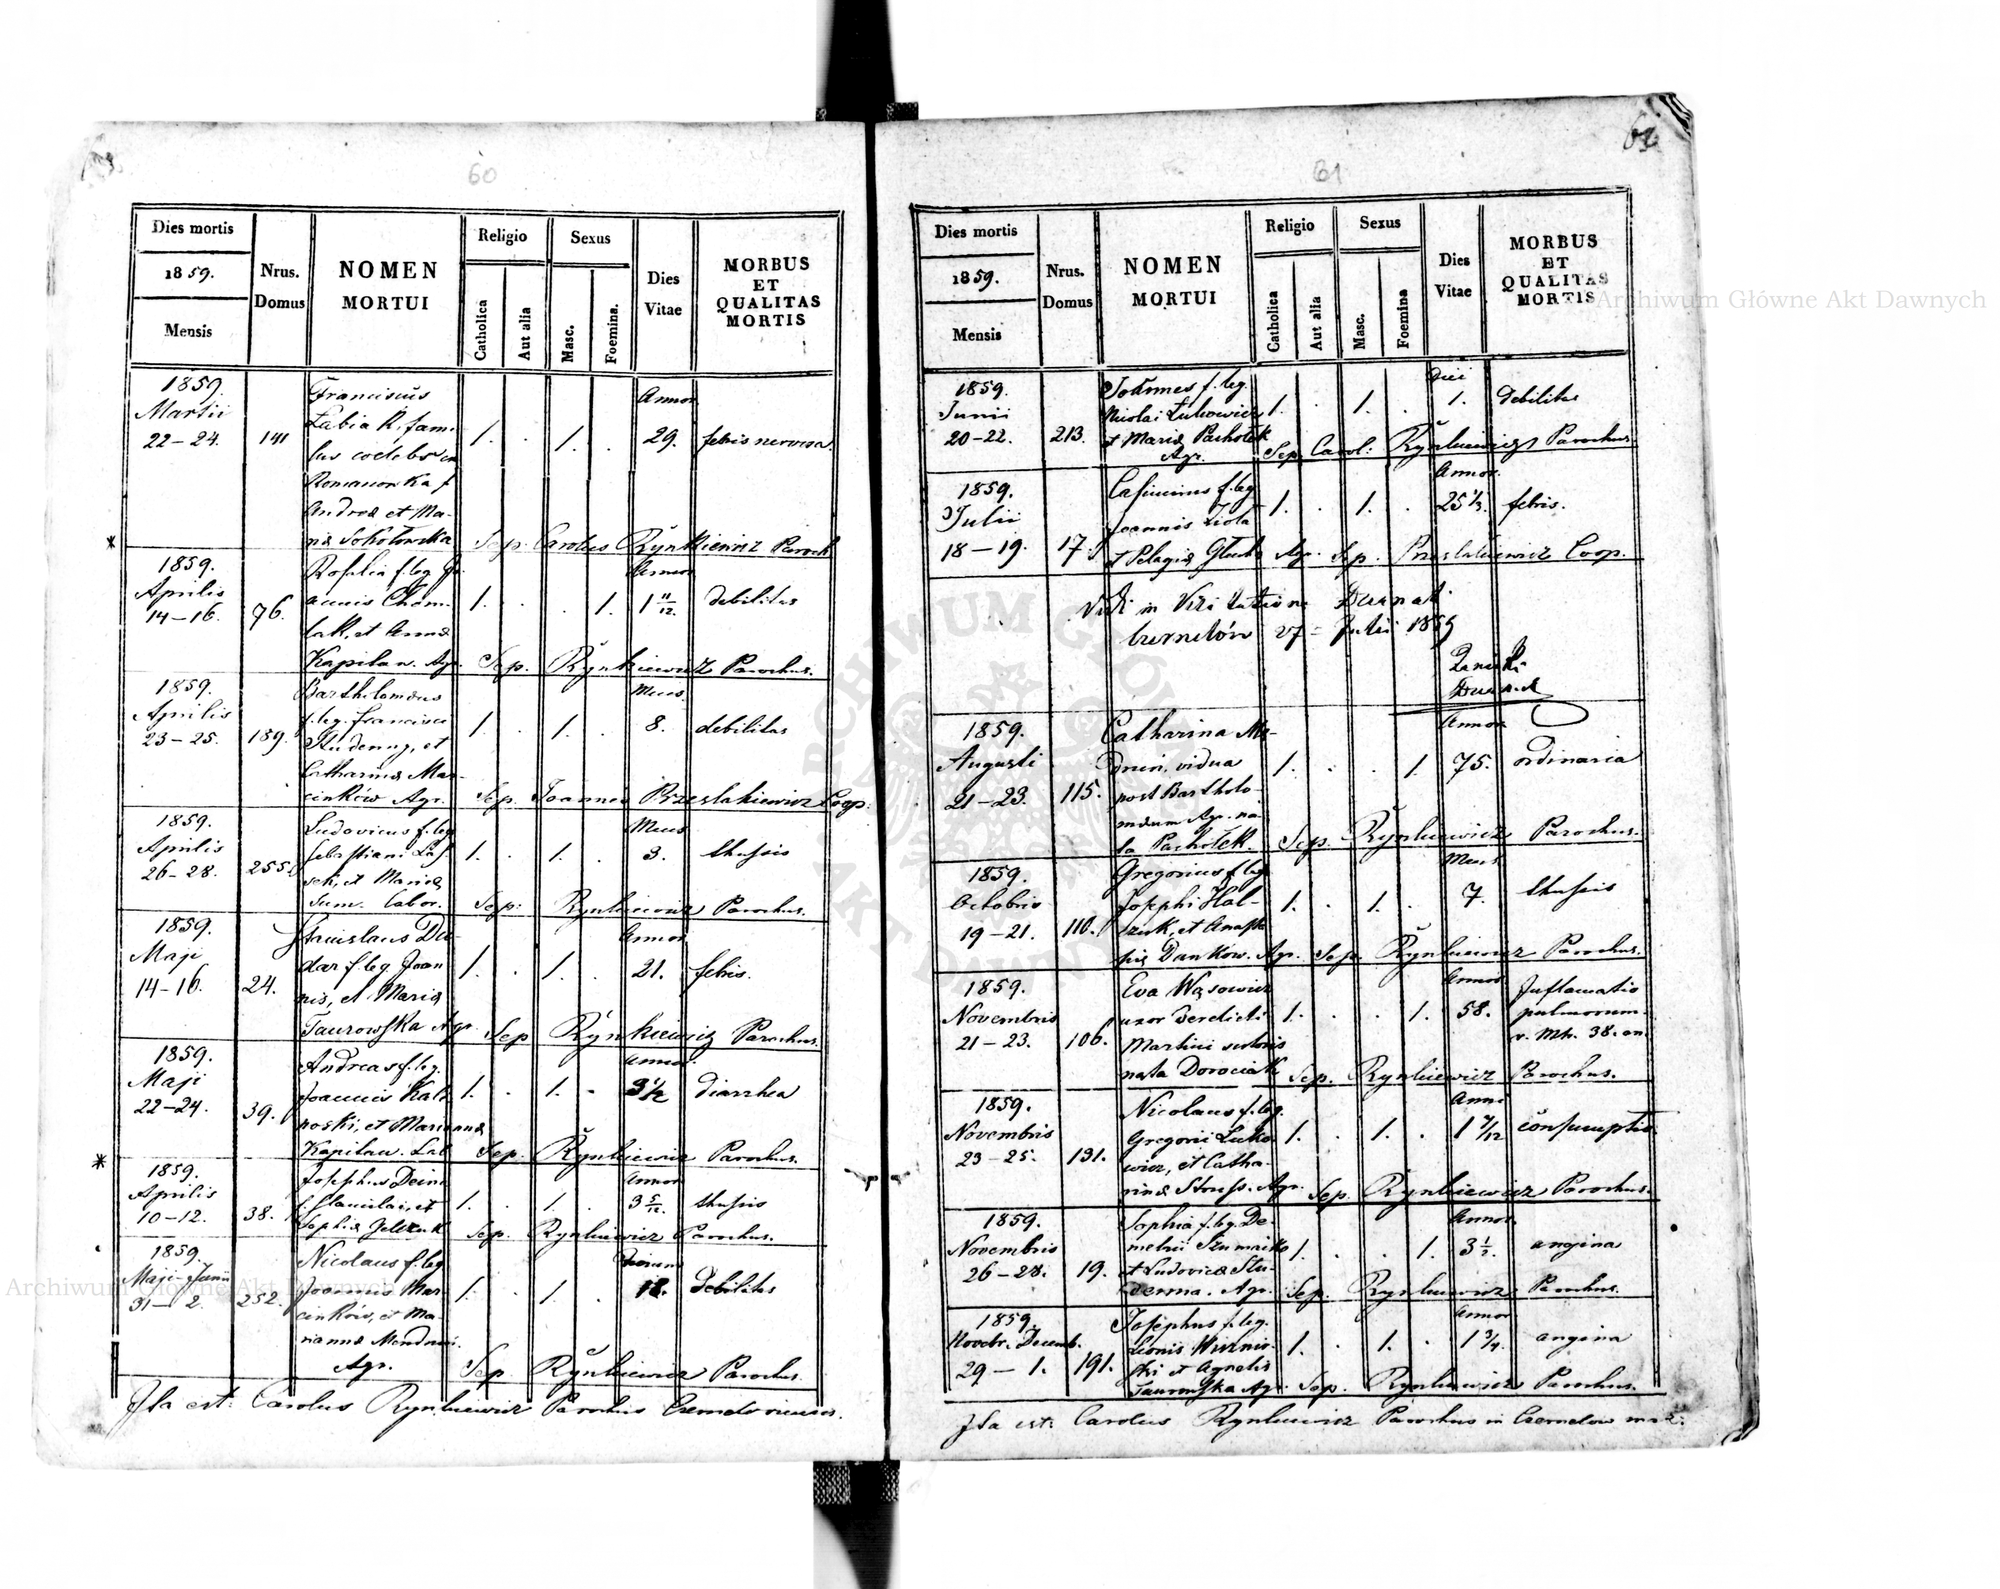 60
Dies mortis
1859.
Mensis
Nrus.
Domus
NOMEN
MORTUI
Religio
Catholica
Aut alia
Sexus
Masc.
Foemina.
Dies
Vitae
MORBUS
ET
QUALITAS
MORTIS
1859.
Martii
22–24.
141
Franciscus
Labiak, fam-
lus coelebs in
Romanowka f.
Andreæ et Ma-
riæ Sokołowska
1. . 1. .
Annor.
29.
febris nervosa.
Sep. Carolus Rynkiewicz Paroch.
*
1859.
Aprilis
14–16.
76.
Rosalia f. leg. Jo-
annis Chom-
lak, et Annæ
Kapitan. Agr.
1. . . 1.
Annor.
1 11/12.
debilitas
Sep. Rynkiewicz Parochus.
1859.
Aprilis
23–25.
189.
Bartholomæus
f. leg. Francisci
Studenny, et
Catharinæ Mar-
cinków Agr.
1. . 1. .
Mens.
8.
debilitas
Sep. Joannes Przeslakiewicz Coop.
1859.
Aprilis
26–28.
255.
Ludovicus f. leg.
Sebastiani
et Mariæ
Labor.
1. . 1. .
Mens.
3.
thussis
Sep. Rynkiewicz Parochus.
1859.
Maji
14–16.
24.
Stanislaus Du-
dar f. leg. Joan-
nis, et Mariæ
Taurowska Agr.
1. . 1. .
Annor.
21.
febris.
Sep. Rynkiewicz Parochus.
1859.
Maji
22–24.
39.
Andreas f. leg.
Joannis
et Mariannæ
Kapitan. Lab.
1. . 1. .
Annor.
3 1/2
diarrhea
Sep. Rynkiewicz Parochus.
*
1859.
Aprilis
10–12.
38.
Josephus
f. Stanislai, et
Sophiæ
1. . 1. .
Annor.
3 5/12.
thussis
Sep. Rynkiewicz Parochus.
1859.
Maji–Junii
31–2.
252.
Nicolaus f. leg.
Joannis Mar-
cinków, et Ma-
riannæ
Agr.
1. . 1. .
Dierum
18.
Debilitas
Sep. Rynkiewicz Parochus.
Ita est: Carolus Rynkiewicz Parochus
61
Dies mortis
1859.
Mensis
Nrus.
Domus
NOMEN
MORTUI
Religio
Catholica
Aut alia
Sexus
Masc.
Foemina
Dies
Vitae
MORBUS
ET
QUALITAS
MORTIS
1859.
Junii
20–22.
213.
Joannes f. leg.
Nicolai Łukowicz
et Mariæ Pachołek
Agr.
1. . 1. .
Diei
1.
debilitas
Sep. Carol: Rynkiewicz Parochus.
1859.
Julii
18–19.
17.
Casimirus f. leg.
Joannis
et Pelagiæ
Agr.
1. . 1. .
Annor.
febris.
Sep. Przeslakiewicz Coop.
Vidi in Visitatione
27 Julii 1859
1859.
Augusti
21–23.
115.
Catharina Me-
vidua
post Bartholo-
mæum Agr. na-
ta Pachołek.
1. . . 1.
Annor.
75.
ordinaria
Sep. Rynkiewicz Parochus.
1859.
Octobris
19–21.
110.
Gregorius f. leg.
Josephi
et Anasta-
siæ Dankow. Agr.
1. . 1. .
Mens.
7.
thussis
Sep. Rynkiewicz Parochus.
1859.
Novembris
21–23.
106.
Eva Wąsowicz
uxor
Martini sutoris
nata Dorociak
1. . . 1.
Annor.
58.
Inflamatio
pulmorum
Sep. Rynkiewicz Parochus.
1859.
Novembris
23–25.
131.
Nicolaus f. leg.
Gregorii Łuko-
wicz, et Catha-
rinæ Agr.
1. . 1. .
Anni
1 7/12
consumptio
Sep. Rynkiewicz Parochus.
1859.
Novembris
26–28.
19.
Sophia f. leg. De-
metrii
et Ludovicæ Stu-
Agr.
1. . . 1.
Annor.
3 1/2.
angina
Sep. Rynkiewicz Parochus.
1859.
Novebr. Decemb.
29–1.
191.
Josephus f. leg.
Leonis
ski et Agnetis
Taurowska Agr.
1. . 1. .
Annor
1 3/4.
angina
Sep. Rynkiewicz Parochus.
Ita est: Carolus Rynkiewicz Parochus in
Archiwum Główne Akt Dawnych
Archiwum Główne Akt Dawnych
ARCHIWUM GŁÓWNE AKT DAWNYCH